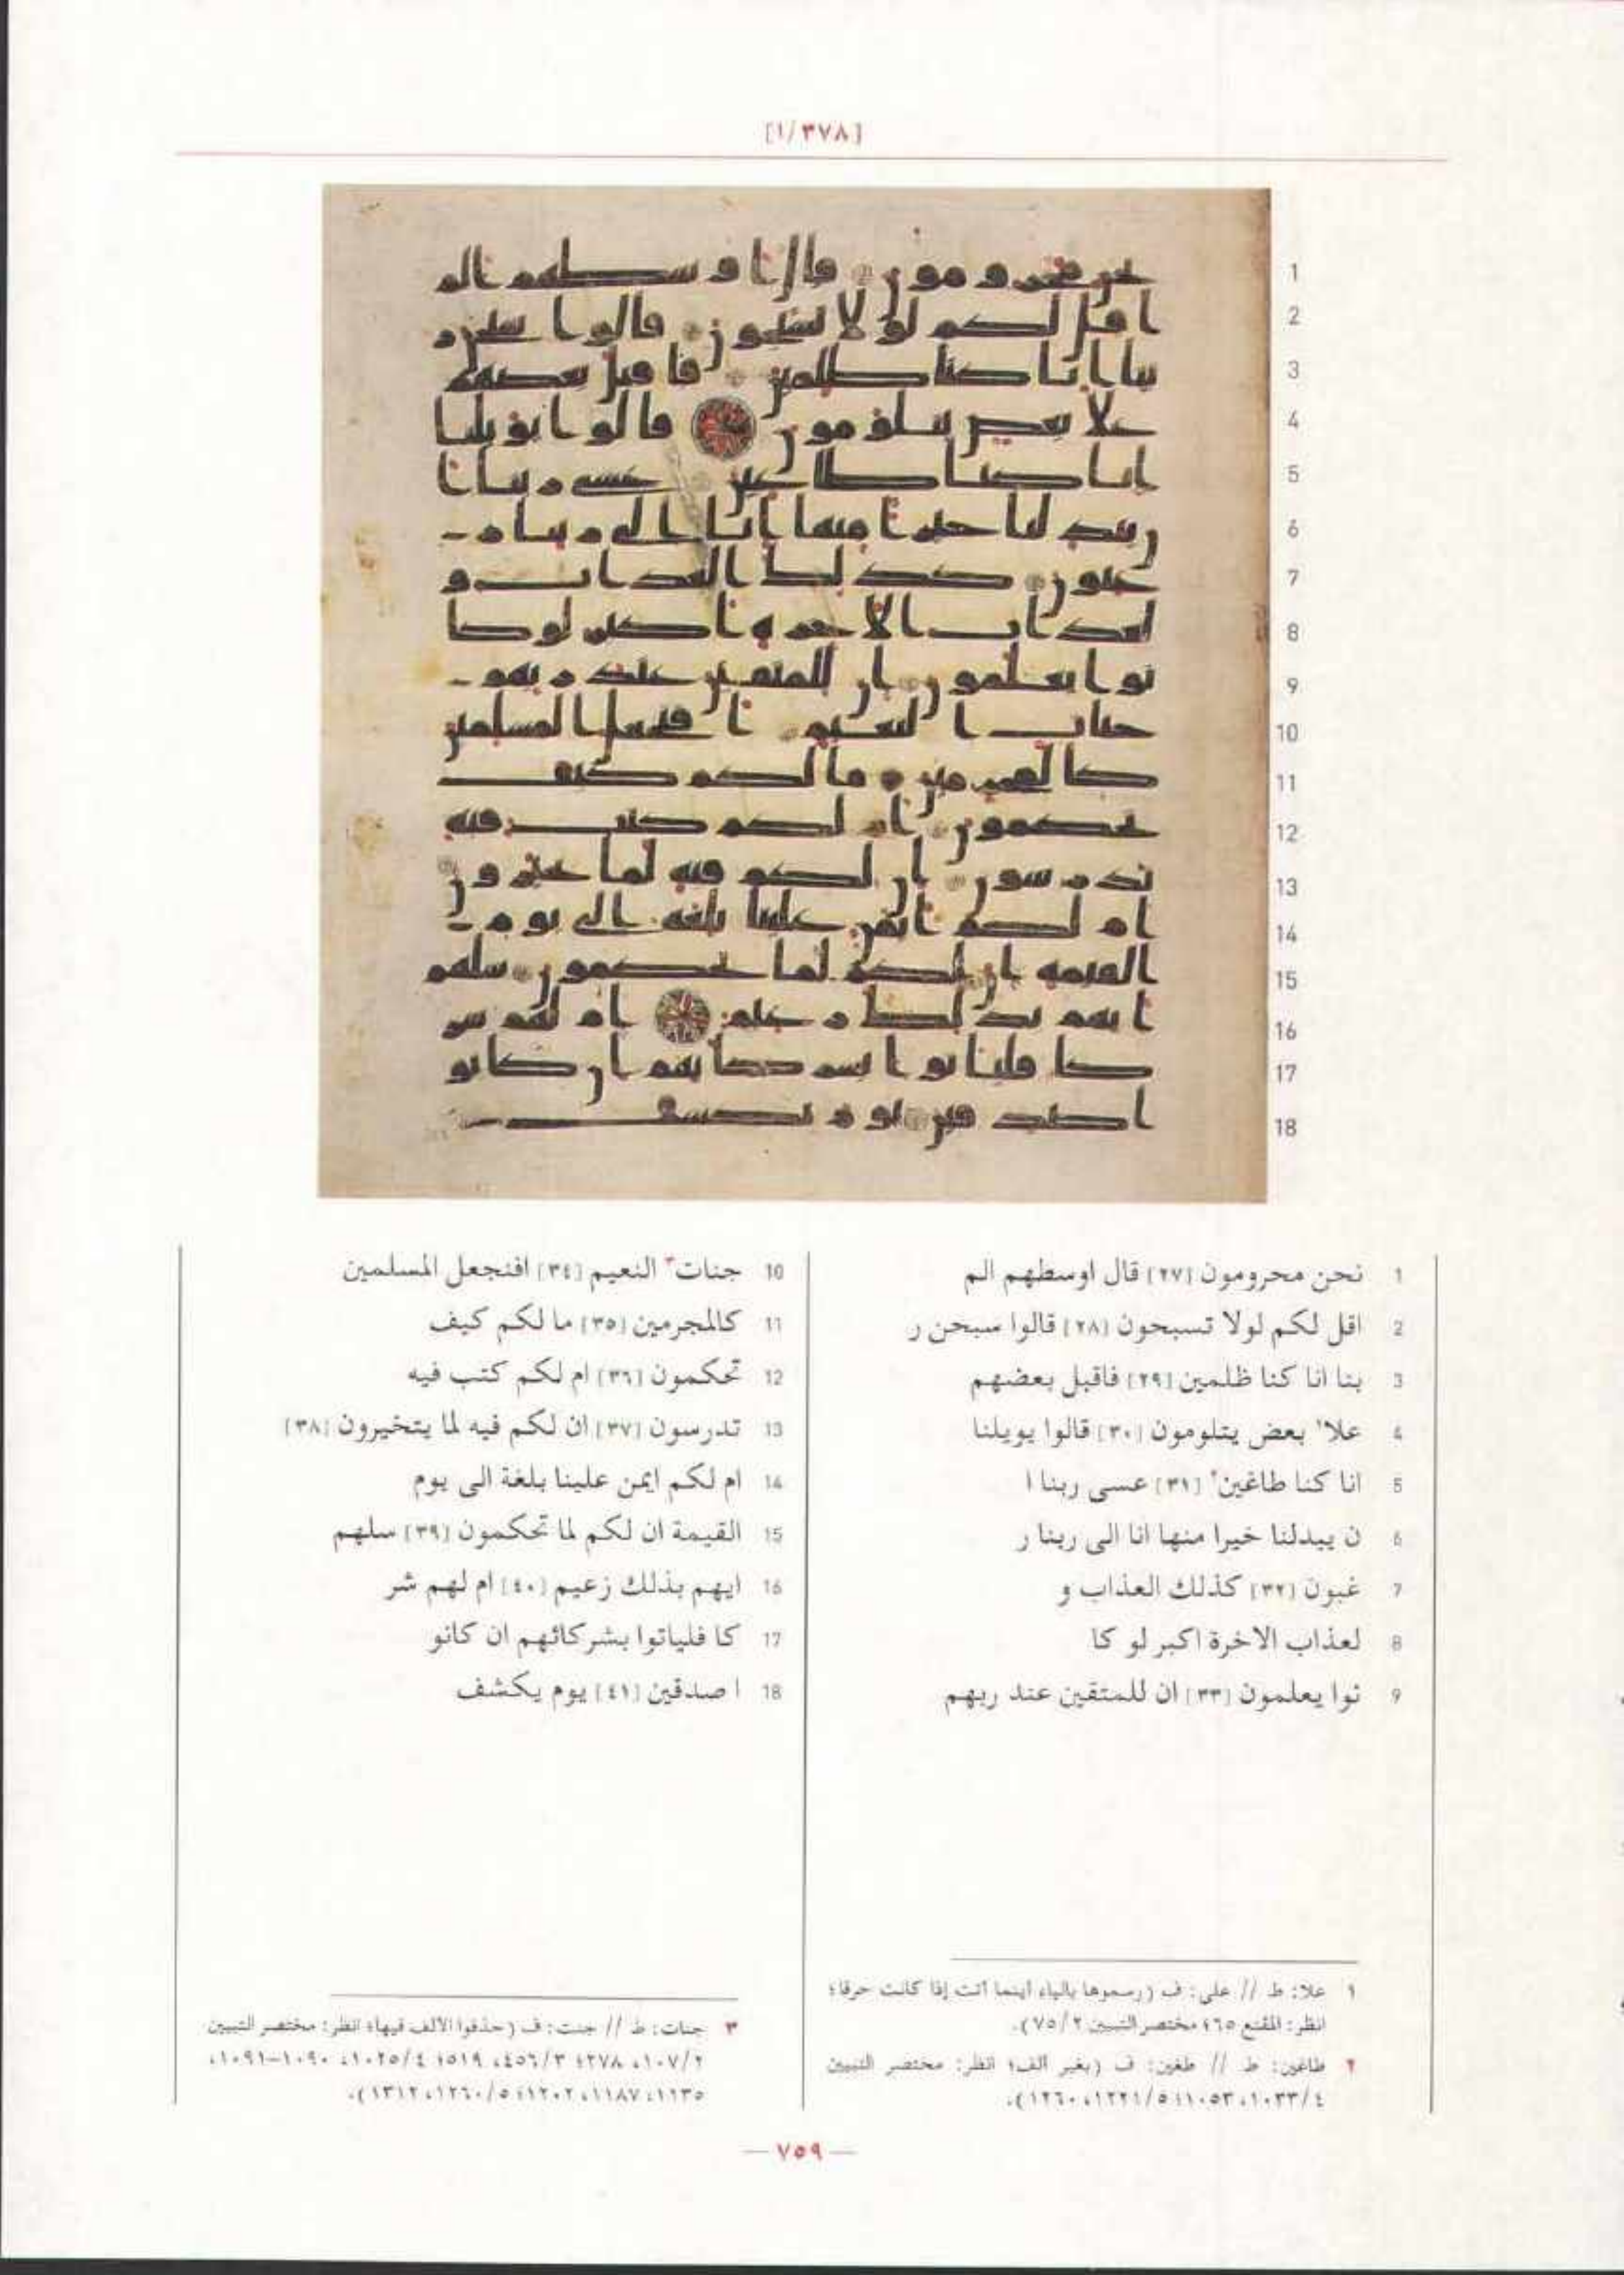 [١/٣٧٨]
1 نحن محرومون [٢٧] قال اوسطهم الم
2 اقل لكم لولا تسبحون [٢٨] قالوا سبحن ر
3 بنا انا كنا ظلمين [٢٩] فاقبل بعضهم
4 علا١ بعض يتلومون [٣٠] قالوا يويلنا
5 انا كنا طاغين٢ [٣١] عسى ربنا ا
6 ن يبدلنا خيرا منها انا الى ربنا ر
7 غبون [٣٢] كذلك العذاب و
8 لعذاب الاخرة اكبر لو كا
9 نوا يعلمون [٣٣] ان للمتقين عند ربهم
10 جنات٣ النعيم [٣٤] افنجعل المسلمين
11 كالمجرمين [٣٥] ما لكم كيف
12 تحكمون [٣٦] ام لكم كتب فيه
13 تدرسون [٣٧] ان لكم فيه لما يتخيرون [٣٨]
14 ام لكم ايمن علينا بلغة الى يوم
15 القيمة ان لكم لما تحكمون [٣٩] سلهم
16 ايهم بذلك زعيم [٤٠] ام لهم شر
17 كا فلياتوا بشركائهم ان كانو
18 ا صدقين [٤١] يوم يكشف
١ علا: ط // على: ف (رسموها بالياء اينما اتت إذا كانت حرفا؛
انظر: المقنع ٦٥؛ مختصر التبيين ٧٥/٢).
٢ طاغين: ط // طغين: ف (بغير الف؛ انظر: مختصر التبيين
٤/١٠٣٣، ١٠٥٣؛ ٥/١٢٢١، ١٢٦٠).
٣ جنات: ط // جنت: ف (حذفوا الالف فيها؛ انظر: مختصر التبيين
٢/١٠٧، ٢٧٨؛ ٣/٤٥٦، ٥١٩؛ ٤/١٠٢٥، ١٠٩٠-١٠٩١،
١١٣٥، ١١٨٧، ١٢٠٢؛ ٥/١٢٦٠، ١٣١٢).
— ٧٥٩ —